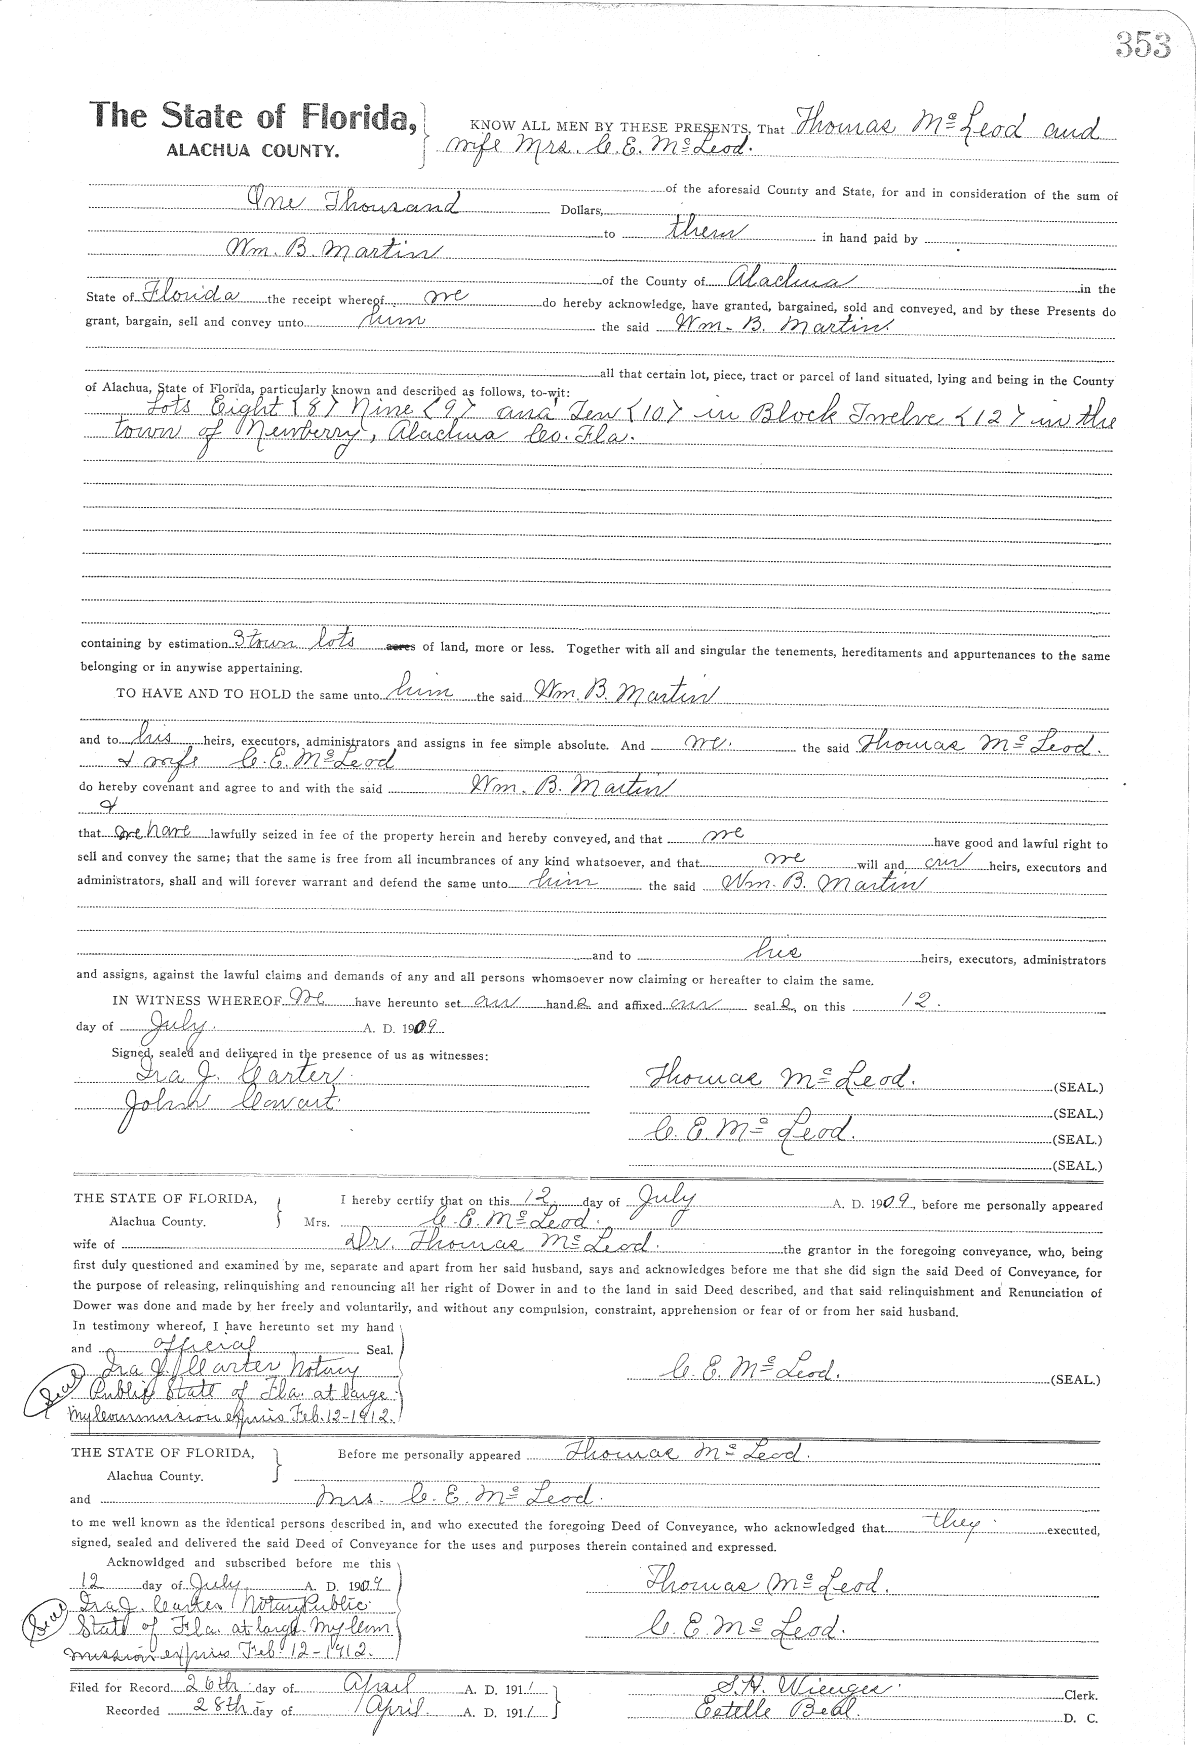 353
The State of Florida,
ALACHUA COUNTY.
KNOW ALL MEN BY THESE PRESENTS, That Thomas McLeod and
wife Mrs. C. E. McLeod.
of the aforesaid County and State, for and in consideration of the sum of
One Thousand Dollars,
to them in hand paid by
Wm. B. Martin
of the County of Alachua in the
State of Florida the receipt whereof we do hereby acknowledge, have granted, bargained, sold and conveyed, and by these Presents do
grant, bargain, sell and convey unto him the said Wm. B. Martin
all that certain lot, piece, tract or parcel of land situated, lying and being in the County
of Alachua, State of Florida, particularly known and described as follows, to-wit:
Lots Eight (8) Nine (9) and Ten (10) in Block Twelve (12) in the
town of Newberry, Alachua Co. Fla.
containing by estimation 3 town lots acres of land, more or less. Together with all and singular the tenements, hereditaments and appurtenances to the same
belonging or in anywise appertaining.
TO HAVE AND TO HOLD the same unto him the said Wm. B. Martin
and to his heirs, executors, administrators and assigns in fee simple absolute. And we. the said Thomas McLeod.
& wife C. E. McLeod
do hereby covenant and agree to and with the said Wm. B. Martin
&
that we have lawfully seized in fee of the property herein and hereby conveyed, and that we have good and lawful right to
sell and convey the same; that the same is free from all incumbrances of any kind whatsoever, and that we will and our heirs, executors and
administrators, shall and will forever warrant and defend the same unto him the said Wm. B. Martin
and to his heirs, executors, administrators
and assigns, against the lawful claims and demands of any and all persons whomsoever now claiming or hereafter to claim the same.
IN WITNESS WHEREOF We have hereunto set our hands and affixed our seals, on this 12.
day of July. A. D. 1909.
Signed, sealed and delivered in the presence of us as witnesses:
Ira J. Carter.
John Cowart.
Thomas McLeod. (SEAL.)
(SEAL.)
C. E. McLeod. (SEAL.)
(SEAL.)
THE STATE OF FLORIDA,
Alachua County.
I hereby certify that on this 12 day of July A. D. 1909, before me personally appeared
Mrs. C. E. McLeod.
wife of Dr. Thomas McLeod. the grantor in the foregoing conveyance, who, being
first duly questioned and examined by me, separate and apart from her said husband, says and acknowledges before me that she did sign the said Deed of Conveyance, for
the purpose of releasing, relinquishing and renouncing all her right of Dower in and to the land in said Deed described, and that said relinquishment and Renunciation of
Dower was done and made by her freely and voluntarily, and without any compulsion, constraint, apprehension or fear of or from her said husband.
In testimony whereof, I have hereunto set my hand
and official Seal.
Ira J. Carter Notary
Seal Public State of Fla. at large.
My Commission expires Feb. 12-1912.
C. E. McLeod. (SEAL.)
THE STATE OF FLORIDA,
Alachua County.
Before me personally appeared Thomas McLeod.
and Mrs. C. E. McLeod.
to me well known as the identical persons described in, and who executed the foregoing Deed of Conveyance, who acknowledged that they executed,
signed, sealed and delivered the said Deed of Conveyance for the uses and purposes therein contained and expressed.
Acknowldged and subscribed before me this
12 day of July. A. D. 1909
Ira J. Carter Notary Public.
Seal State of Fla. at large. My Com
mission expires Feb. 12-1912.
Thomas McLeod.
C. E. McLeod.
Filed for Record 26th day of April A. D. 1911
Recorded 28th day of April. A. D. 1911
S. H. Wienges. Clerk.
Estelle Beal. D. C.